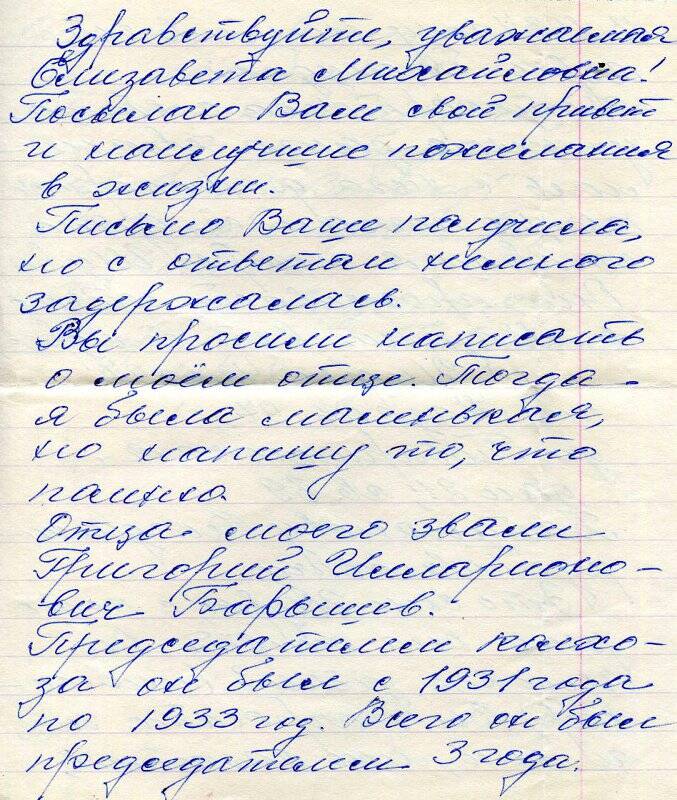 Здравствуйте, уважаемая
Елизавета Михайловна!
Посылаю Вам свой привет
и наилучшие пожелания
в жизни.
Письмо Ваше получила,
но с ответом немного
задержалась.
Вы просили написать
о моём отце. Тогда
я была маленькая,
но напишу то, что
помню.
Отца моего звали
Григорий Илларионо-
вич Барышев.
Председателем колхо-
за он был с 1931 года
по 1933 год. Всего он был
председателем 3 года.